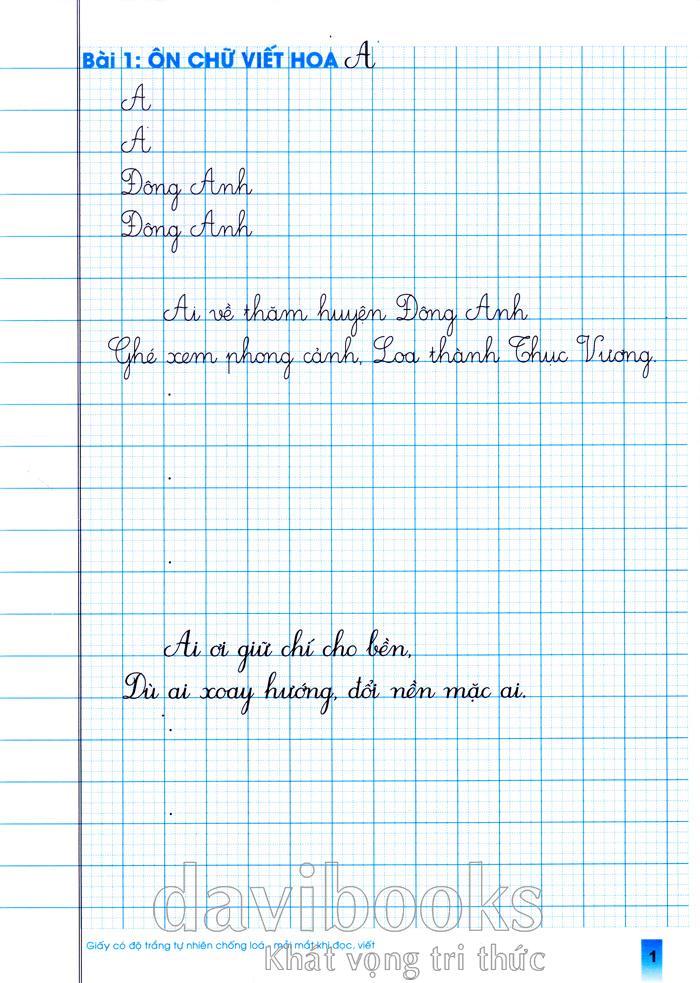 Bài 1: ÔN CHỮ VIẾT HOA A
A
A
Đông Anh
Đông Anh
Ai về thăm huyện Đông Anh
Ghé xem phong cảnh, Loa thành Thục Vương.
Ai ơi giữ chí cho bền,
Dù ai xoay hướng, đổi nền mặc ai.
davibooks
Giấy có độ trắng tự nhiên chống loá, mỏi mắt khi đọc, viết
Khát vọng tri thức
1